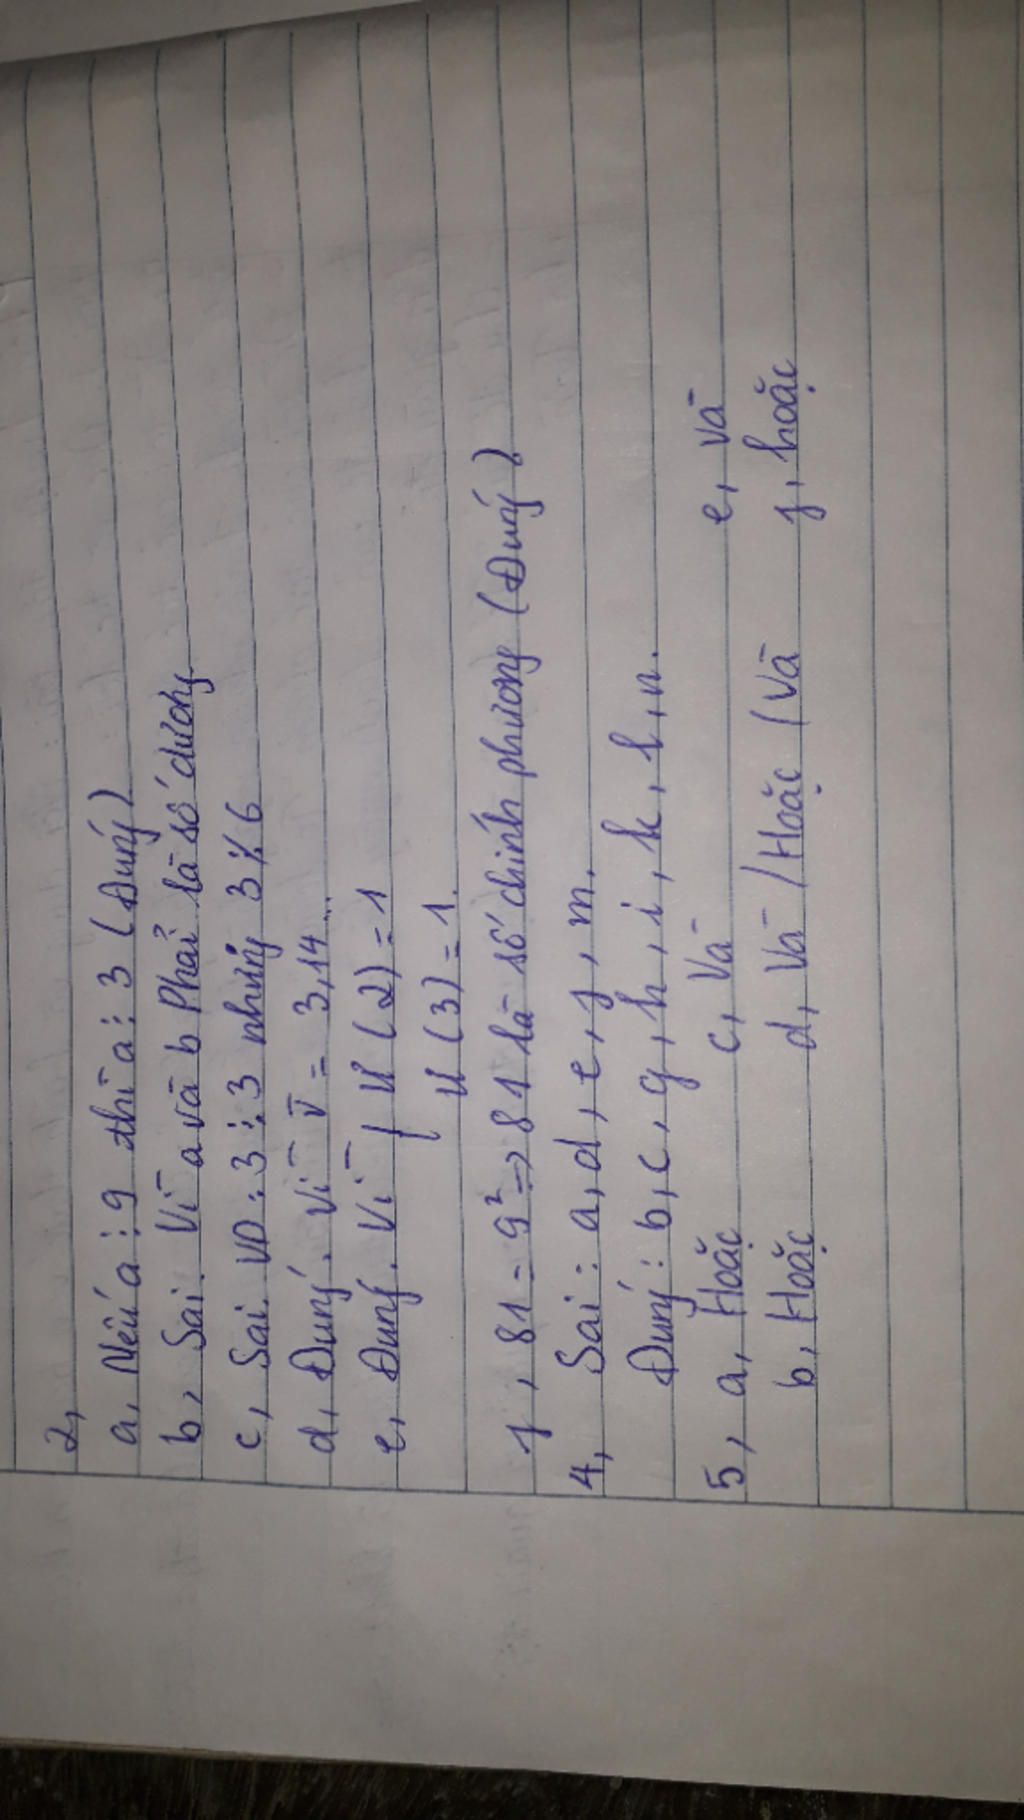 2,
a, Nếu a ⋮ 9 thì a ⋮ 3 (Đúng)
b, Sai. Vì a và b Phải là số dương.
c, Sai. VD: 3 ⋮ 3 nhưng 3 ⋮̸ 6
d, Đúng. Vì π = 3,14...
e, Đúng. Vì { Ư (2) = 1
Ư (3) = 1.
f, 81 = 9² => 81 là số chính phương (Đúng)
4, Sai: a, d, e, f, m.
Đúng: b, c, g, h, i, k, l, n.
5, a, Hoặc c, Và e, Và
b, Hoặc d, Và / Hoặc (Và f, hoặc